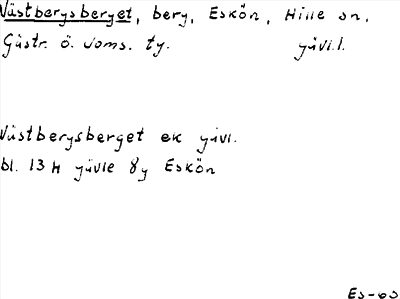 Västbergsberget, berg, Eskön, Hille sn,
Gästr. ö. doms. tg. gävl.l.
Västbergsberget ek gävl.
bl. 13 H gävle 8g Eskön
Es-63